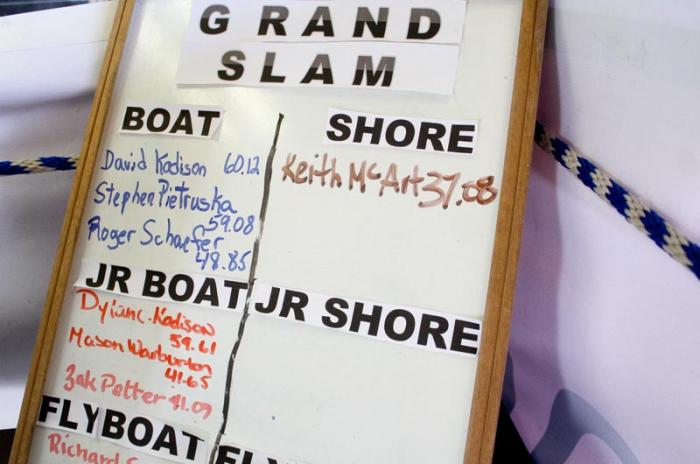 GRAND
SLAM
BOAT
David Kadison 60.12
Stephen Pietruska
59.08
Roger Schaefer
48.85
SHORE
Keith McArt 37.08
JR BOAT
Dylan C. Kadison
59.61
Mason Warburton
41.65
Zak Potter 41.09
JR SHORE
FLYBOAT
Richard